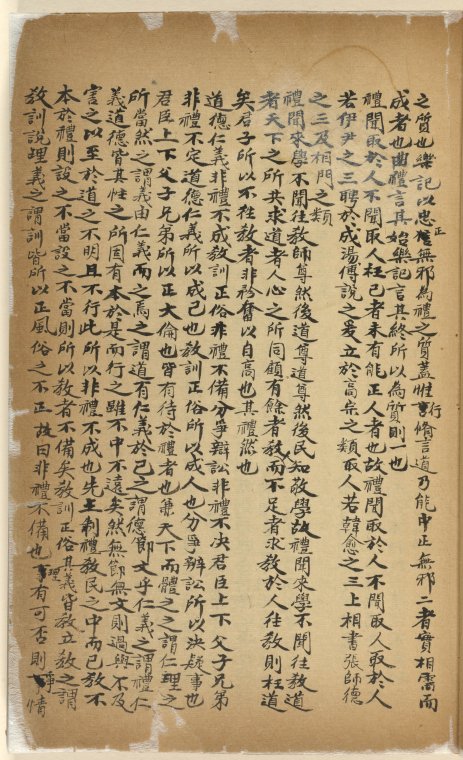 之質也樂記以忠信無邪為禮之質蓋性行脩言道乃能中正無邪二者實相需而
成者也曲禮言其始樂記言其終所以為質則一也
禮聞取於人不聞取人枉己者未有能正人者也故禮聞取於人不聞取人取於人
若伊尹之三聘於成湯傅說之爰立於高宗之類取人若韓愈之三上相書張師德
之三及相門之類
禮聞來學不聞往教師尊然後道尊道尊然後民知敬學故禮聞來學不聞往教道
者天下之所共求道者人心之所同願有餘者教而不足者求教於人往教則枉道
矣君子所以不往教者非矜奮以自高也其禮然也
道德仁義非禮不成教訓正俗非禮不備分爭辯訟非禮不決君臣上下父子兄弟
非禮不定道德仁義所以成己也教訓正俗所以成人也分爭辯訟所以決疑事也
君臣上下父子兄弟所以正大倫也皆有待於禮者也兼天下而體之之謂仁理之
所當然之謂義由仁義而之焉之謂道有仁義於己之謂德節文乎仁義之謂禮仁
義道德皆其性之所固有本於是而行之雖不中不遠矣然無節無文則過與不及
害之以至於道之不明且不行此所以非禮不成也先王制禮教民之中而已教不
本於禮則設之不當設之不當則所以教者不備矣教訓正俗其義皆教立教之謂
教訓說理義之謂訓皆所以正風俗之不正故曰非禮不備也理有可否則事情